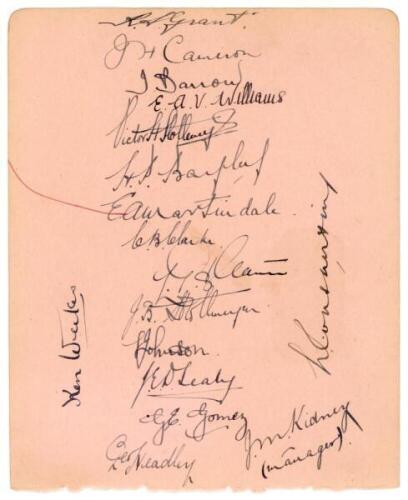 R.S. Grant.
J H Cameron
I Barrow
E.A.V. Williams
Victor H Stollmeyer
H.P. Bayley
E A Martindale.
C.B. Clarke
J.B. Stollmeyer
T Johnson.
J E D Sealy
G.E. Gomez
Geo Headley
J.M. Kidney
(manager).
Ken Weekes
L Constantine